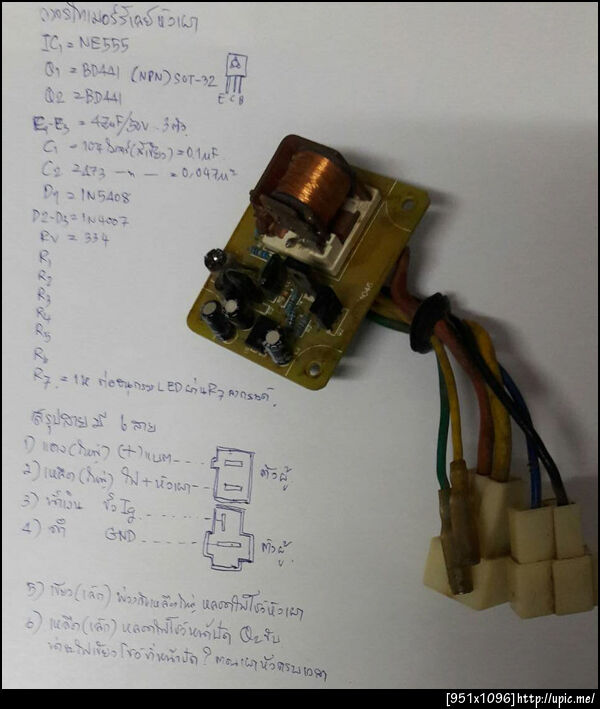 วงจรไทเมอร์รีเลย์หัวเผา
IC1 = NE555
Q1 = BD441 (NPN) SOT-32
Q2 = BD441
E C B
E1-E3 = 47uF/50V 3 ตัว
C1 = 104 = 0.1uF
C2 = 473 — " — = 0.047u
D1 = 1N5408
D2-D3 = 1N4007
RV = 334
R1
R2
R3
R4
R5
R6
R7 = 1K ต่ออนุกรม LED ผ่าน R7 ลงกราวด์
สรุปสายมี 6 สาย
1) แดง(ใหญ่) (+) แบต
2) เหลือง(ใหญ่) ไฟ + หัวเผา
ตัวผู้
3) น้ำเงิน ขั้ว Ig
4) ดำ GND
ตัวผู้
5) เขียว(เล็ก) พ่วงกับเหลืองใหญ่ หลอดไฟโชว์หัวเผา
6) เหลือง(เล็ก) หลอดไฟโชว์หน้าปัด Q2 ขับ
โชว์ที่หน้าปัด ?
[951x1096]http://upic.me/